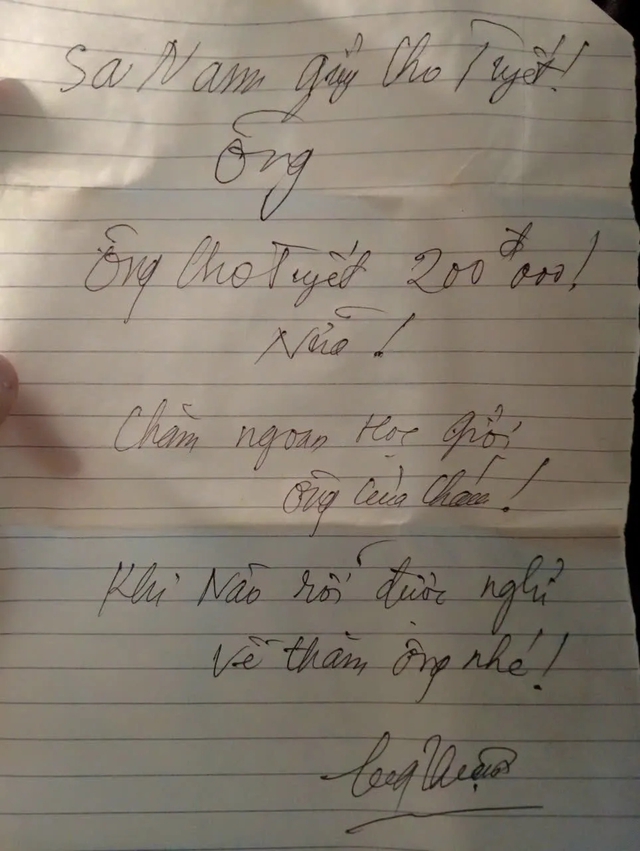 Sa Nam gửi Cho Tuyết!
Ông
Ông Cho Tuyết 200đ000!
Nữa!
Chăm ngoan Học giỏi
ông của Cháu!
Khi Nào rỗi được nghỉ
Về thăm ông nhé!